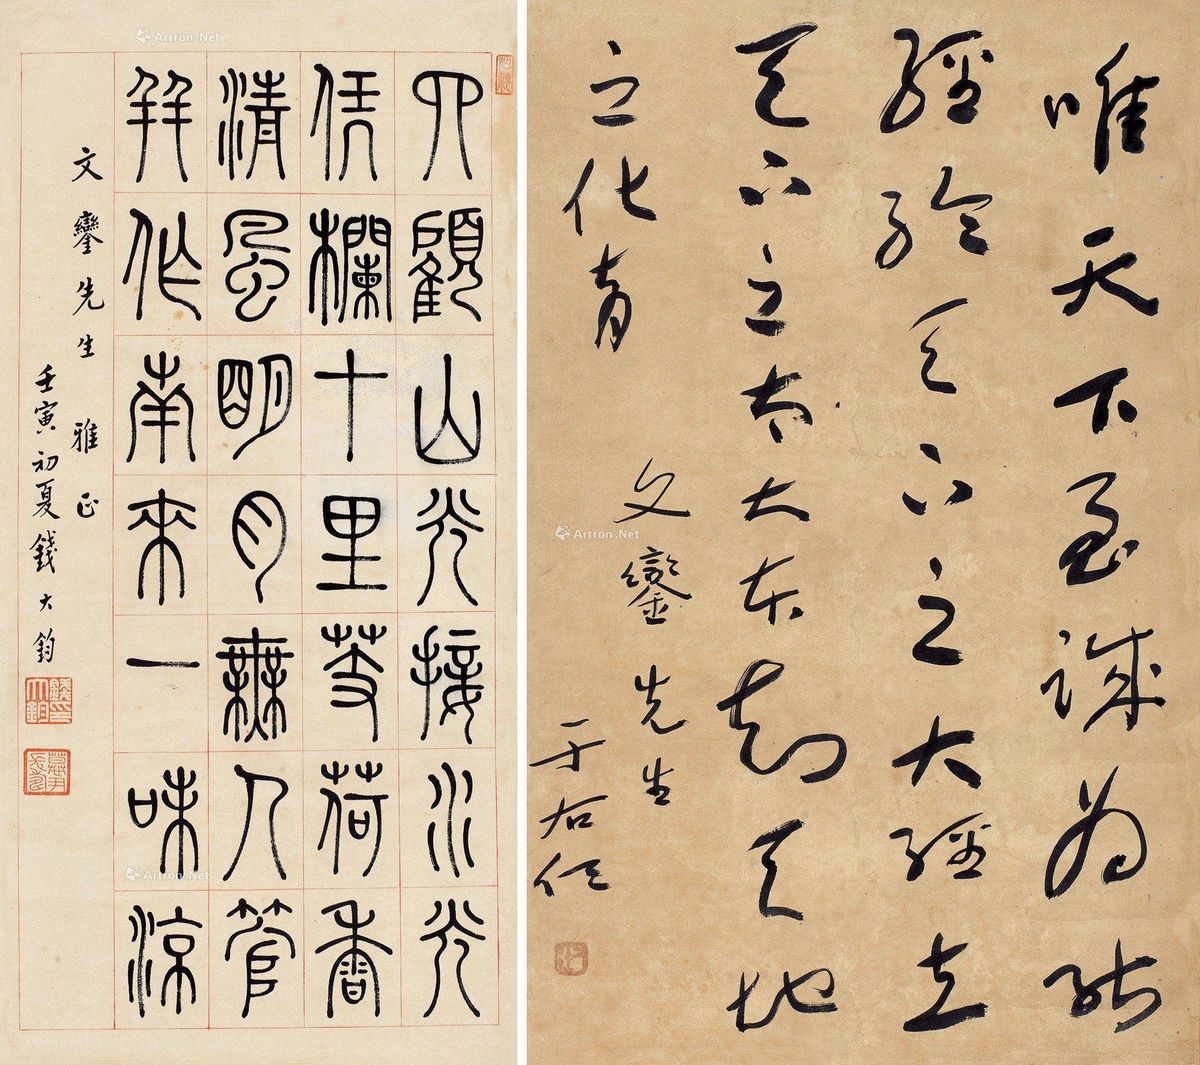 四顧山光接水光
凭欄十里芰荷香
清風明月無人管
并作南來一味涼
文鑾先生 雅正
壬寅初夏錢大鈞
錢大鈞印
唯天下至誠為能
經綸天下之大經立
天下之大本知天地
之化育
文鑾先生
于右任
Artron.Net
Artron.Net
Artron.Net